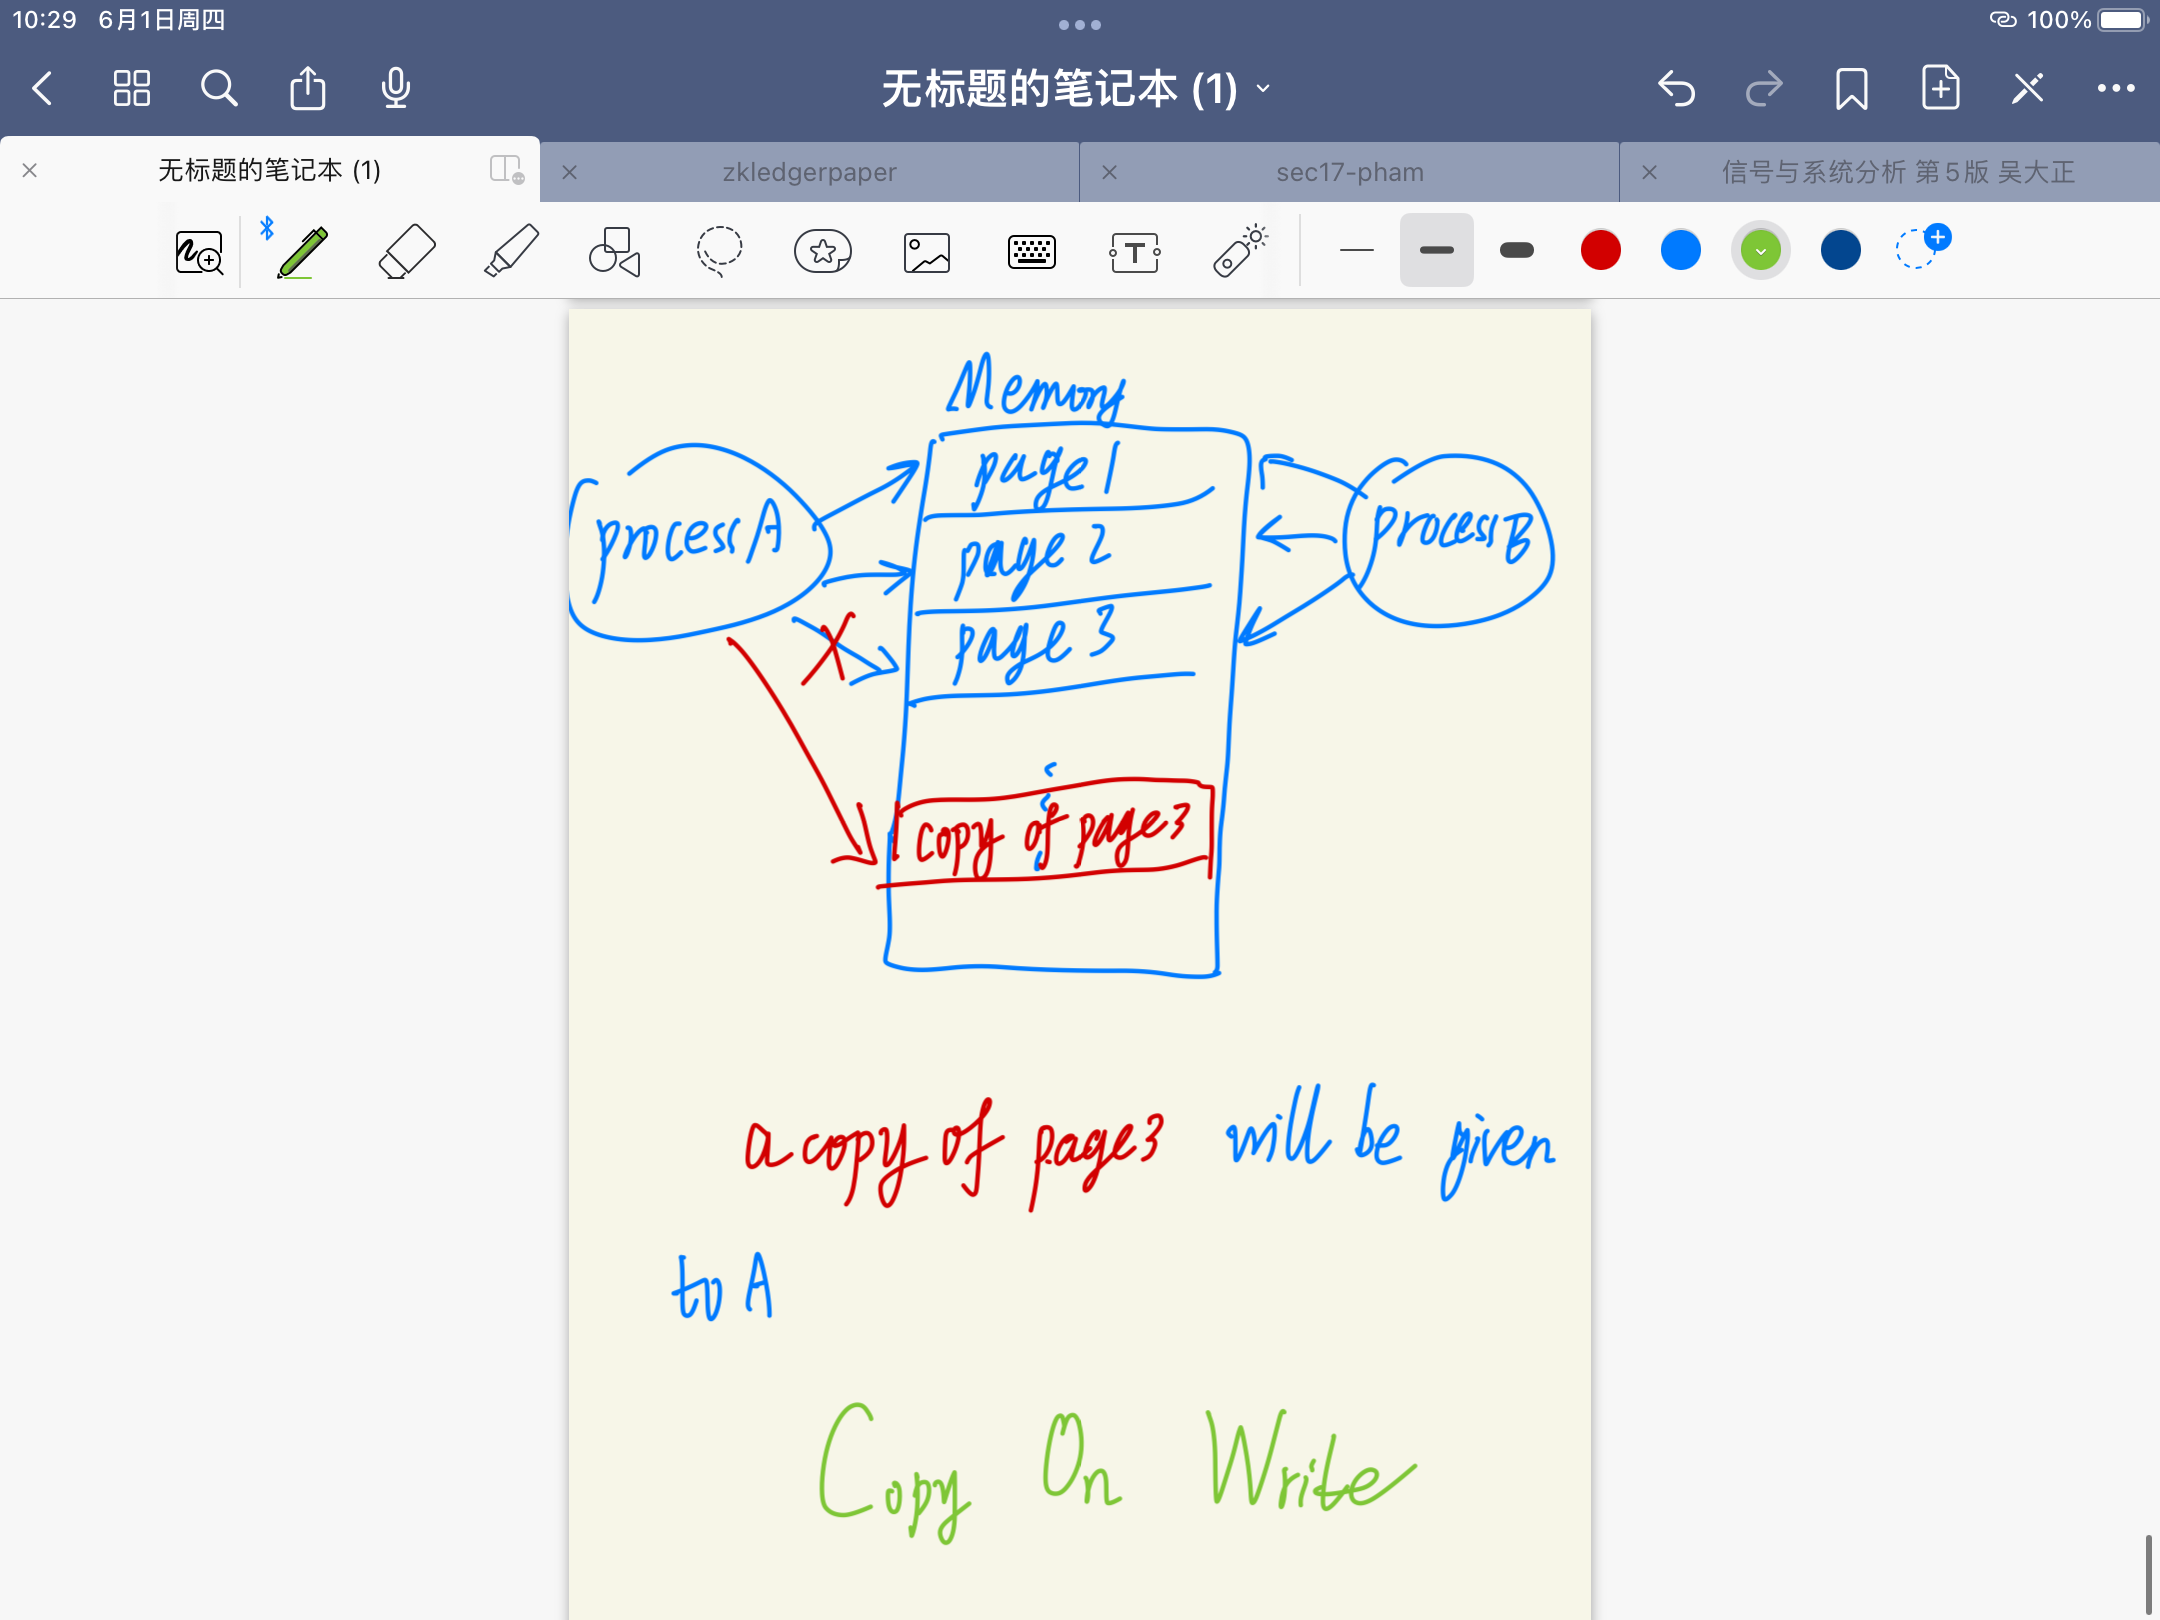 10:29 6月1日周四
100%
无标题的笔记本 (1)
无标题的笔记本 (1)
zkledgerpaper
sec17-pham
信号与系统分析 第5版 吴大正
T
Memory
page 1
process A
process B
page 2
page 3
copy of page 3
a copy of page 3 will be given
to A
Copy On Write